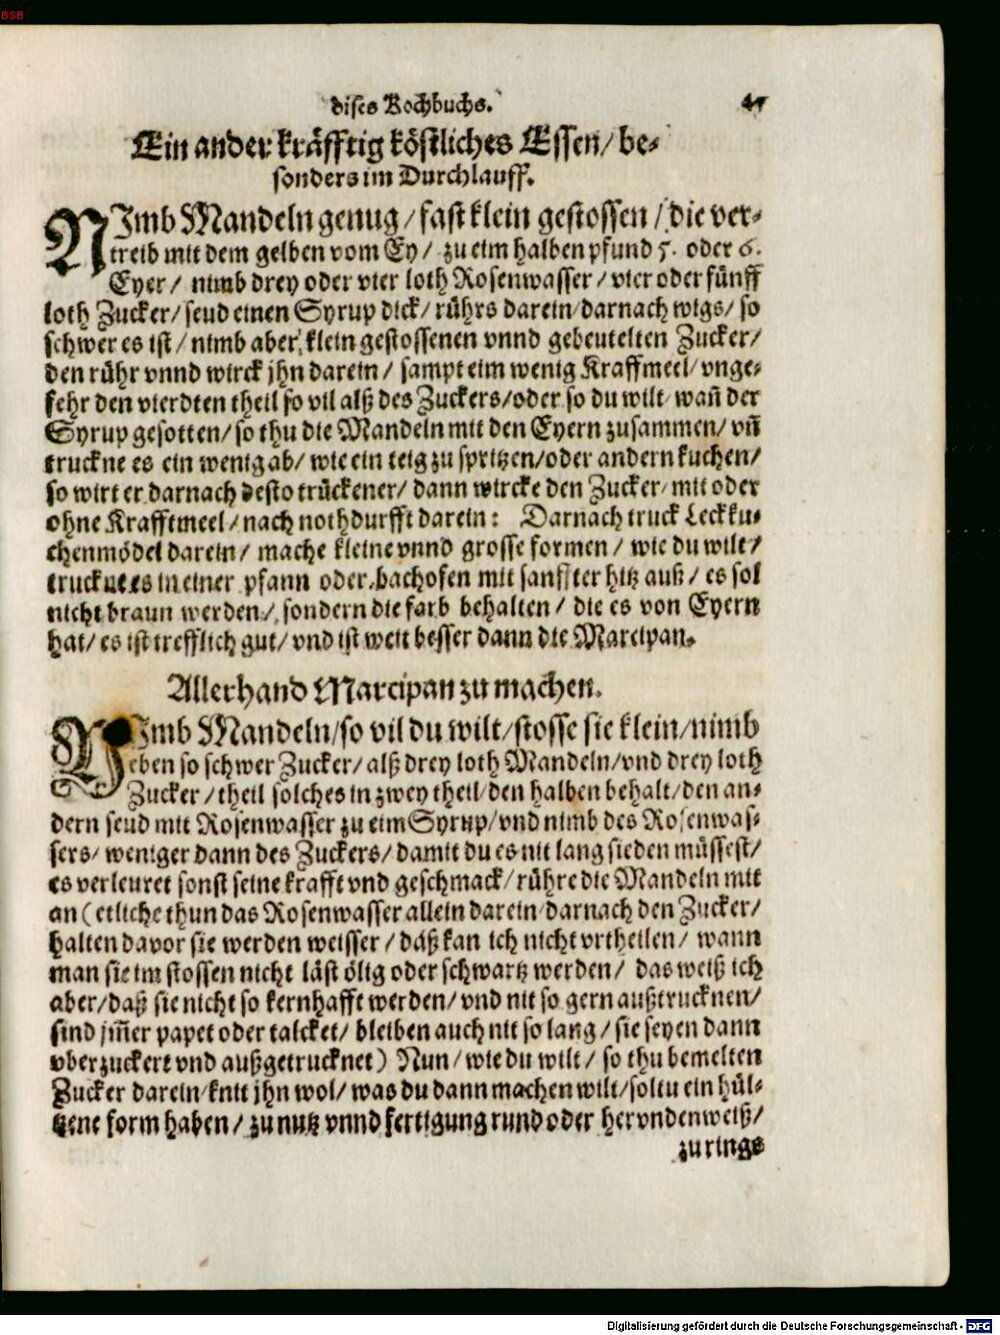 BSB
dises Kochbuchs.
Ein ander kräfftig köstliches Essen/ be-
sonders im Durchlauff.
NImb Mandeln genug/ fast klein gestossen/ die ver-
treib mit dem gelben vom Ey/ zu eim halben pfund 5. oder 6.
Eyer/ nimb drey oder vier loth Rosenwasser/ vier oder fünff
loth Zucker/ seud einen Syrup dick/ rührs darein/ darnach wigs/ so
schwer es ist/ nimb aber klein gestossenen vnnd gebeutelten Zucker/
den rühr vnnd wirck jhn darein/ sampt eim wenig Kraffmeel/ vnge-
fehr den vierdten theil so vil alß des Zuckers/ oder so du wilt/ wañ der
Syrup gesotten/ so thu die Mandeln mit den Eyern zusammen/ vñ
truckne es ein wenig ab/ wie ein teig zu spritzen/ oder andern kuchen/
so wirt er darnach desto trückener/ dann wircke den Zucker/ mit oder
ohne Krafftmeel/ nach nothdurfft darein: Darnach truck Leckku-
chenmödel darein/ mache kleine vnnd grosse formen/ wie du wilt/
truckne es in einer pfann oder bachofen mit sanffter hitz auß/ es sol
nicht braun werden/ sondern die farb behalten/ die es von Eyern
hat/ es ist trefflich gut/ vnd ist weit besser dann die Marcipan.
Allerhand Marcipan zu machen.
NImb Mandeln/ so vil du wilt/ stosse sie klein/ nimb
eben so schwer Zucker/ alß drey loth Mandeln/ vnd drey loth
Zucker/ theil solches in zwey theil/ den halben behalt/ den an-
dern seud mit Rosenwasser zu eim Syrup/ vnd nimb des Rosenwas-
sers/ weniger dann des Zuckers/ damit du es nit lang sieden müssest/
es verleuret sonst seine krafft vnd geschmack/ rühre die Mandeln mit
an (etliche thun das Rosenwasser allein darein/ darnach den Zucker/
halten davor sie werden weisser/ daß kan ich nicht vrtheilen/ wann
man sie im stossen nicht läst ölig oder schwartz werden/ das weiß ich
aber/ daß sie nicht so kernhafft werden/ vnd nit so gern außtrucknen/
sind jm̃er papet oder talcket/ bleiben auch nit so lang/ sie seyen dann
vberzuckert vnd außgetrucknet) Nun/ wie du wilt/ so thu bemelten
Zucker darein/ knit jhn wol/ was du dann machen wilt/ soltu ein hül-
tzene form haben/ zu nutz vnnd fertigung rund oder herundenweiß/
zu rings
Digitalisierung gefördert durch die Deutsche Forschungsgemeinschaft - DFG